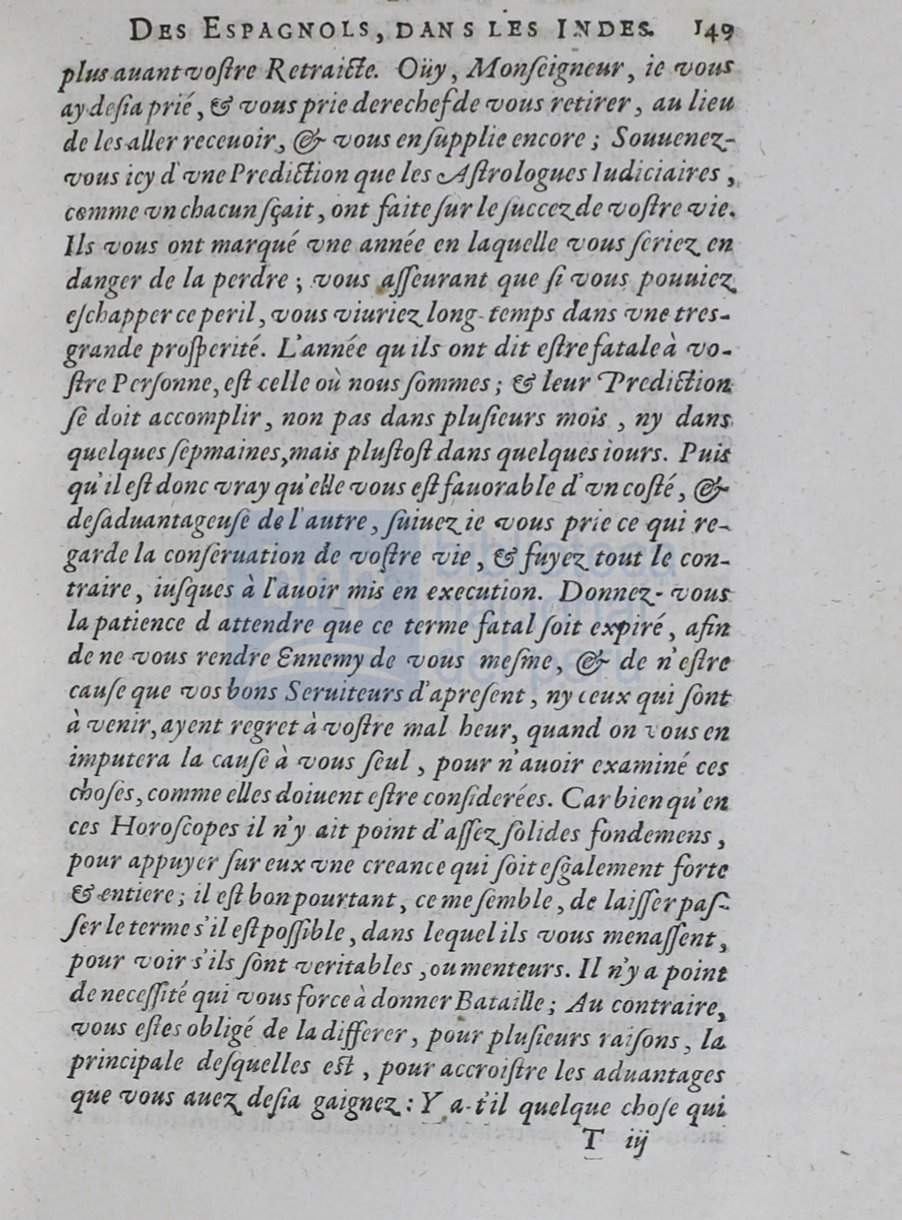 DES ESPAGNOLS, DANS LES INDES. 149
plus auant voſtre Retraicte. Oüy, Monſeigneur, ie vous
ay deſia prié, & vous prie derechef de vous retirer, au lieu
de les aller receuoir, & vous en ſupplie encore ; Souuenez-
vous icy d'vne Prediction que les Aſtrologues Iudiciaires,
comme vn chacun ſçait, ont faite ſur le ſuccez de voſtre vie.
Ils vous ont marqué vne année en laquelle vous ſeriez en
danger de la perdre ; vous aſſeurant que ſi vous pouuiez
eſchapper ce peril, vous viuriez long-temps dans vne tres-
grande proſperité. L'année qu'ils ont dit eſtre fatale à vo-
ſtre Perſonne, eſt celle où nous ſommes ; & leur Prediction
ſe doit accomplir, non pas dans pluſieurs mois, ny dans
quelques ſepmaines, mais pluſtoſt dans quelques iours. Puis
qu'il eſt donc vray qu'elle vous eſt fauorable d'vn coſté, &
deſaduantageuſe de l'autre, ſuiuez ie vous prie ce qui re-
garde la conſeruation de voſtre vie, & fuyez tout le con-
traire, iuſques à l'auoir mis en execution. Donnez-vous
la patience d'attendre que ce terme fatal ſoit expiré, afin
de ne vous rendre Ennemy de vous meſme, & de n'eſtre
cauſe que vos bons Seruiteurs d'apreſent, ny ceux qui ſont
à venir, ayent regret à voſtre mal heur, quand on vous en
imputera la cauſe à vous ſeul, pour n'auoir examiné ces
choſes, comme elles doiuent eſtre conſiderées. Car bien qu'en
ces Horoſcopes il n'y ait point d'aſſez ſolides fondemens,
pour appuyer ſur eux vne creance qui ſoit eſgalement forte
& entiere ; il eſt bon pourtant, ce me ſemble, de laiſſer paſ-
ſer le terme s'il eſt poſſible, dans lequel ils vous menaſſent,
pour voir s'ils ſont veritables, ou menteurs. Il n'y a point
de neceſſité qui vous force à donner Bataille ; Au contraire,
vous eſtes obligé de la differer, pour pluſieurs raiſons, la
principale deſquelles eſt, pour accroiſtre les aduantages
que vous auez deſia gaignez : Y a-t'il quelque choſe qui
T iij
bnp biblioteca
nacional
del perú